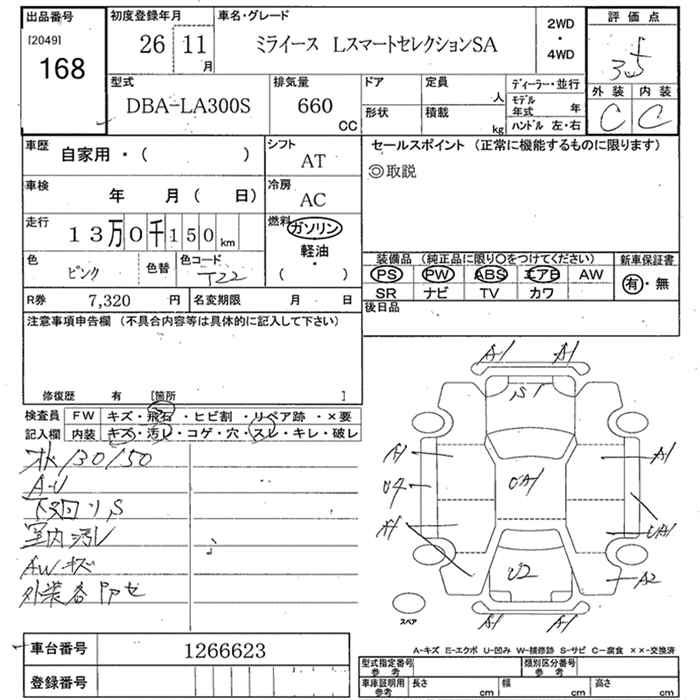 出品番号 初度登録年月 車名・グレード 評価点
[2049] 168
26 11月 ミライース LスマートセレクションSA
2WD ・ 4WD
3.5
外装 内装
C C
型式 排気量 ドア 定員 人 ディーラー・並行
DBA-LA300S 660 CC
形状 積載 kg モデル年式 年
ハンドル 左・右
車歴 自家用・( ) シフト AT
セールスポイント (正常に機能するものに限ります)
◎取説
車検 年 月( 日) 冷房 AC
走行 13万0千150km
燃料 ガソリン 軽油 ・ ( )
色 ピンク 色替 色コード T22
装備品 (純正品に限り○をつけてください) 新車保証書
PS PW ABS エアB AW 有・無
SR ナビ TV カワ
R券 7,320 円 名変期限 月 日
後日品
注意事項申告欄 (不具合内容等は具体的に記入して下さい)
修復歴 有 [箇所 ]
検査員 FW キズ・飛石・ヒビ割・リペア跡・×要
記入欄 内装 キズ・汚レ・コゲ・穴・スレ・キレ・破レ
130150
A・U
下廻りS
室内汚レ
AWキズ
A1 A1
S1
A1 A1
U4 UA1
A1 UA1
U2 A2
A1 A1
スペア
車台番号 1266623
登録番号
A-キズ E-エクボ U-凹み W-補修跡 S-サビ C-腐食 ××-交換済
型式指定番号 参考 類別区分番号 参考
車庫証明用 参考 長さ cm 幅 cm 高さ cm